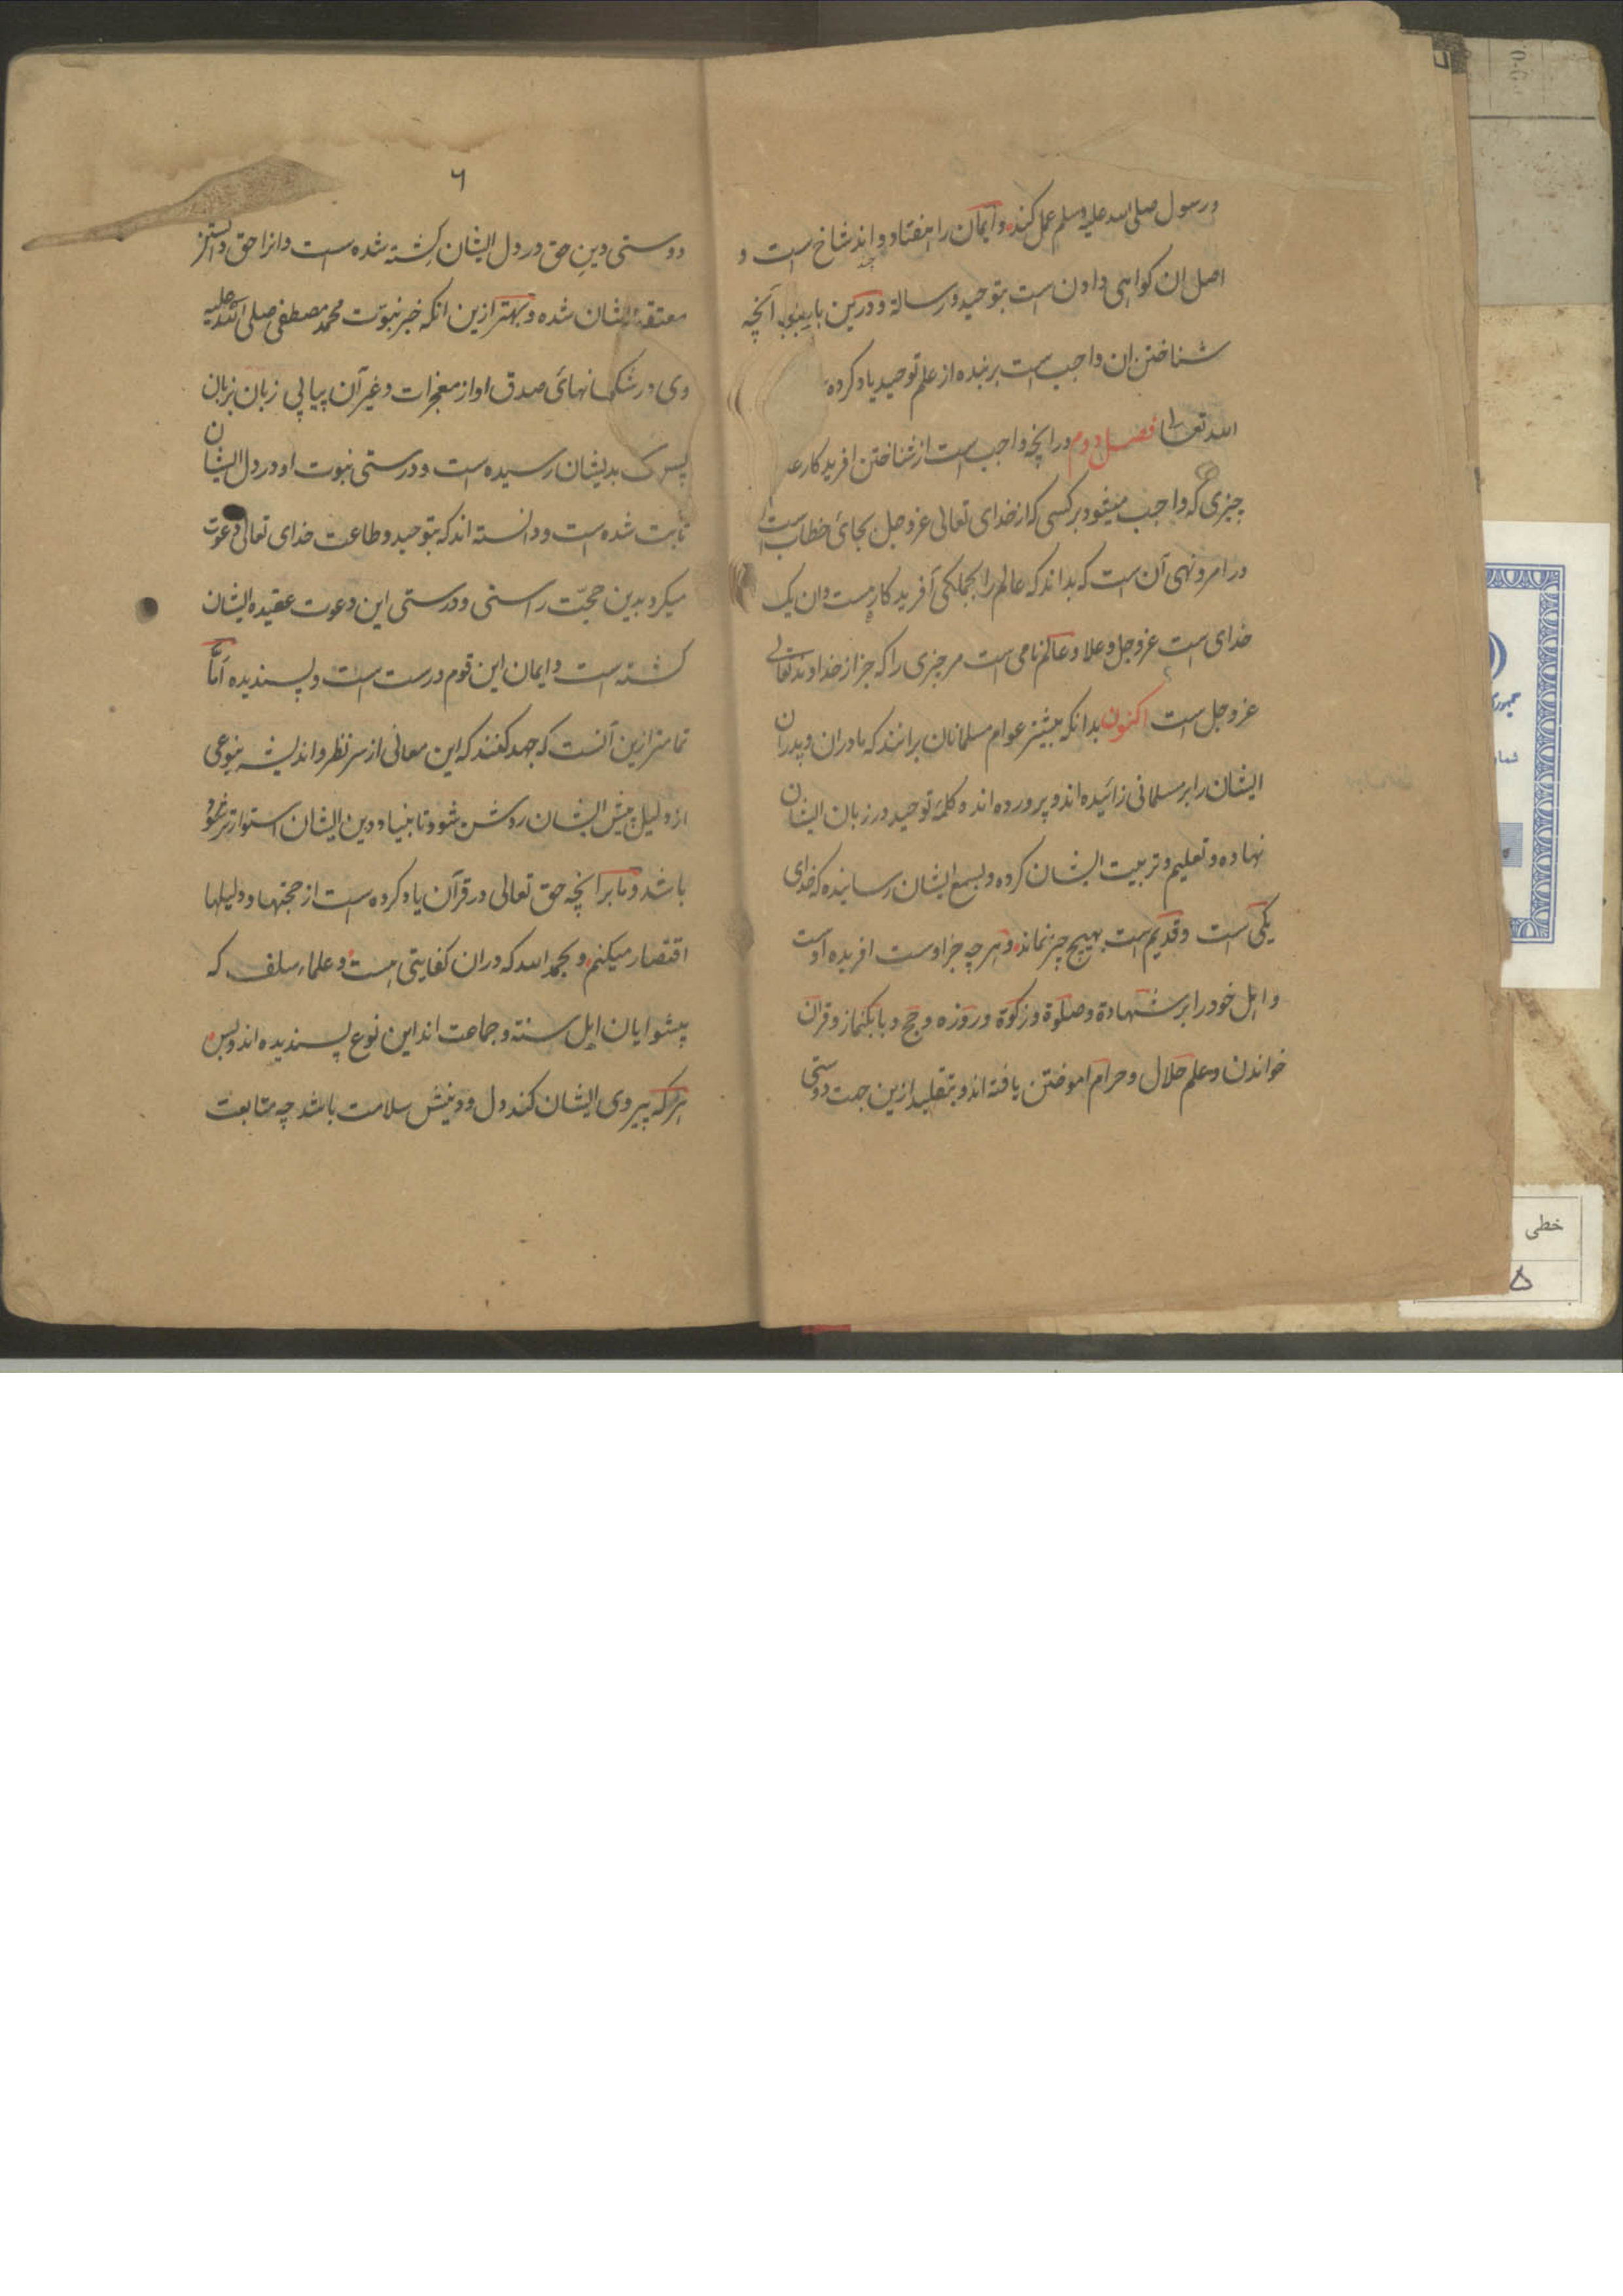 ورسول صلی الله علیه وسلم عمل کنند وایمان را هفتاد واند شاخ است و
اصل ان کواهی دادن است بتوحید ورسالة ودرین باب آنچه
شناختن ان واجب است بر بنده از علم توحید یاد کرده
الله تعالی فصل دوم درانچه واجب است از شناختن افریدکار عز
چیزی که واجب میشود بر کسی که از خدای تعالی عزوجل بجای خطاب است
در امر ونهی آن است که بداند که عالم را بجملکی آفریدکاریست وان یک
خدای است عزوجل وعلا وعالم نامی است مر چیزی را که جز از خداوند تعالی
عزوجل است اکنون بدانکه بیشتر عوام مسلمانان برانند که مادران وپدران
ایشان را بر مسلمانی زائیده اند وپرورده اند وکلمه توحید در زبان ایشان
نهاده وتعلیم وتربیت ایشان کرده وبسمع ایشان رسانیده که خدای
یکی است وقدیم است بهیچ چیز نماند وهرچه جز اوست افریده اوست
واهل خود را بر شهادة وصلوة وزکوة وروزه وحج وبانکنماز وقران
خواندن وعلم حلال وحرام اموختن یافته اند وبتقلید ازین جهت دوستی
٦
دوستی دین حق در دل ایشان کشته شده است وانرا حق دانستن
معتقد ایشان شده وبهتر ازین انکه خبر نبوّت محمد مصطفی صلی الله علیه
وی ورشکها نهائ صدق او از معجزات وغیر آن پیاپی زبان بزبان
پس بدیشان رسیده است ودرستی نبوت او در دل ایشان
ثابت شده است ودانسته اند که بتوحید وطاعت خدای تعالی دعوت
میکرد بدین حجّت راستی ودرستی این دعوت عقیده ایشان
کشته است وایمان این قوم درست است وپسندیده امّا
تمامتر ازین آنست که جهد کنند که این معانی از سر نظر واندیشه بنوعی
از دلیل پیش ایشان روشن شود تا بنیاد دین ایشان استوارتر شود
باشد وما بر انچه حق تعالی در قرآن یاد کرده است از حجتها ودلیلها
اقتصار میکنم وبحمد الله که دران کفایتی هست وعلماء سلف که
پیشوایان اهل سنة وجماعت اند این نوع پسندیده اند وبس
هرکه پیروی ایشان کند دل ودینش سلامت باشد چه متابعت
خطی
۵